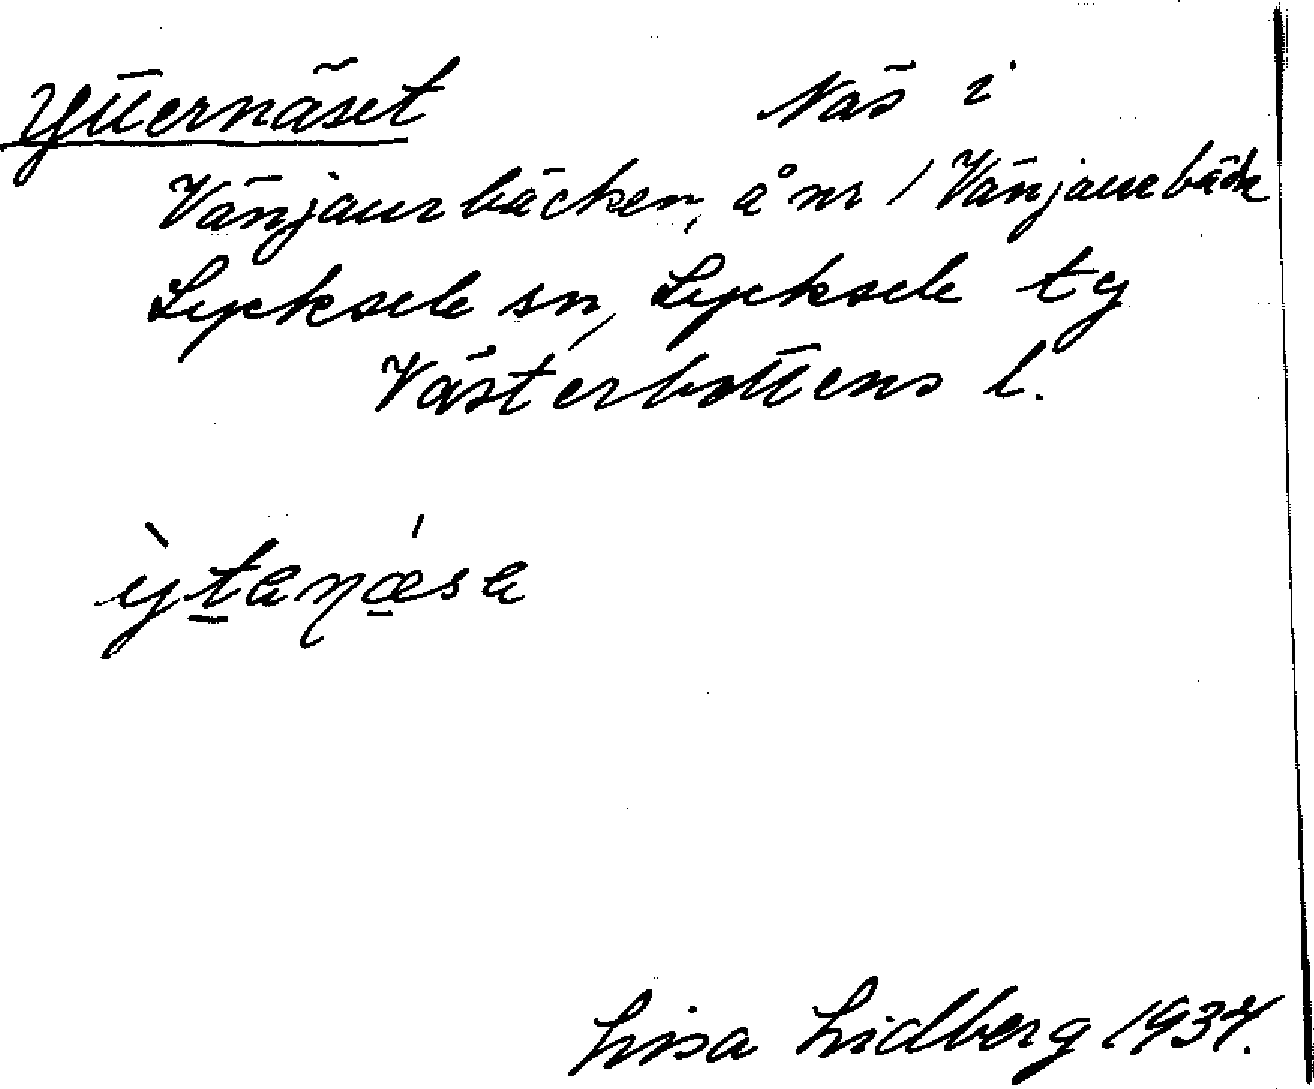 Ytternäset Näs i
Vänjaurbäcken, å nr 1 Vänjaurbäck
Lycksele sn, Lycksele tg
Västerbottens l.
ỳtanǽsa
Lisa Lidberg 1937.